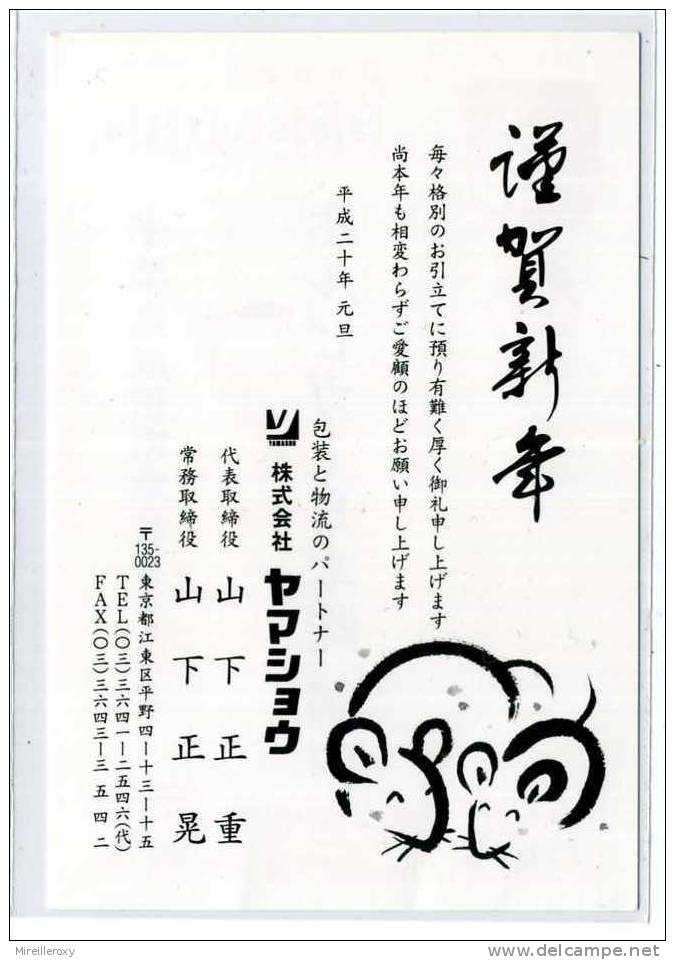 謹賀新年
毎々格別のお引立てに預り有難く厚く御礼申し上げます
尚本年も相変わらずご愛顧のほどお願い申し上げます
平成二十年 元旦
包装と物流のパートナー
YAMASHOW
株式会社 ヤマショウ
代表取締役 山下正重
常務取締役 山下正晃
〒135-0023 東京都江東区平野四ー十三ー十五
TEL(〇三)三六四一ー二五四六(代)
FAX(〇三)三六四三ー三五四二
Mireilleroxy
www.delcampe.net